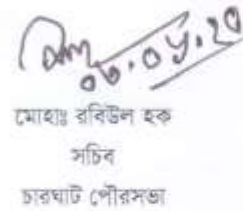 ০৬.০৮.২০
মোহাঃ রবিউল হক
সচিব
চারঘাট পৌরসভা